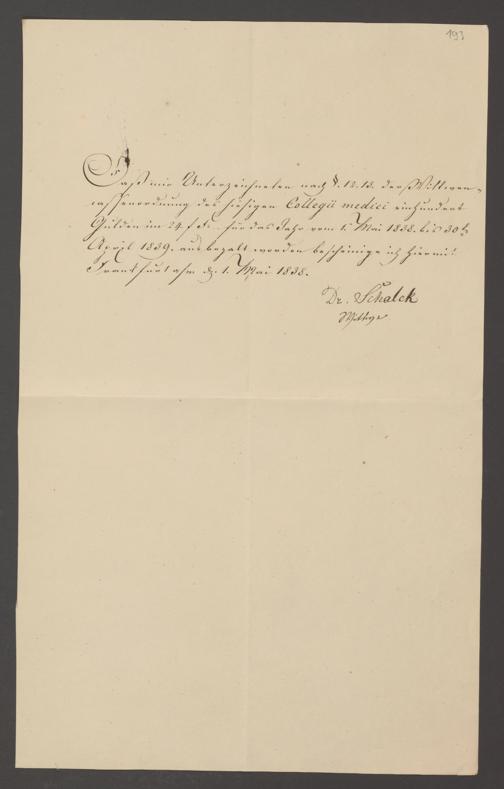 193
Daß mir Unterzeichneten nach §. 12. 13. der Wittwen-
cassenordnung des hiesigen Collegii medici einhundert
Gulden im 24 f. F. für das Jahr vom 1. Mai 1838. bis 30t
April 1839. ausbezalt worden bescheinige ich hiermit.
Frankfurt a/m d. 1. Mai 1838.
Dr. Schalck
Wittwe